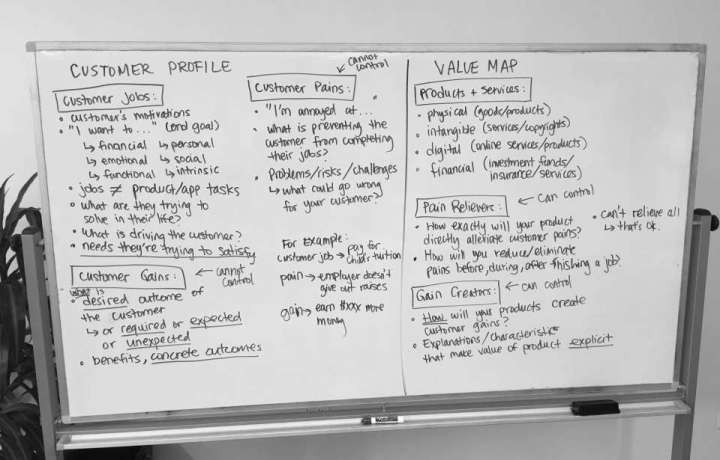 CUSTOMER PROFILE
Customer Jobs:
• customer's motivations
• "I want to..." (end goal)
↳ financial ↳ personal
↳ emotional ↳ social
↳ functional ↳ intrinsic
• jobs ≠ product/app tasks
• What are they trying to
solve in their life?
• What is driving the customer?
• needs they're trying to satisfy
Customer Gains:
← cannot
control
what is
• desired outcome of
the customer
↳ or required or expected
or unexpected
• benefits, concrete outcomes
cannot
control
Customer Pains:
• "I'm annoyed at...
• What is preventing the
customer from completing
their jobs?
• Problems/risks/challenges
↳ what could go wrong
for your customer?
For Example:
customer job → pay for
child's tuition
pain → employer doesn't
give out raises
gain → earn more
money
VALUE MAP
Products + Services:
• physical (goods/products)
• intangible (services/copyrights)
• digital (online services/products)
• financial (investment funds/
insurance/services)
Pain Relievers:
← can control
• How exactly will your product
directly alleviate customer pains?
• How will you reduce/eliminate
pains before, during, after finishing a job?
• can't relieve all
↳ that's ok.
Gain Creators:
← can control
• How will your products create
customer gains?
• Explanations/characteristics
that make value of product explicit